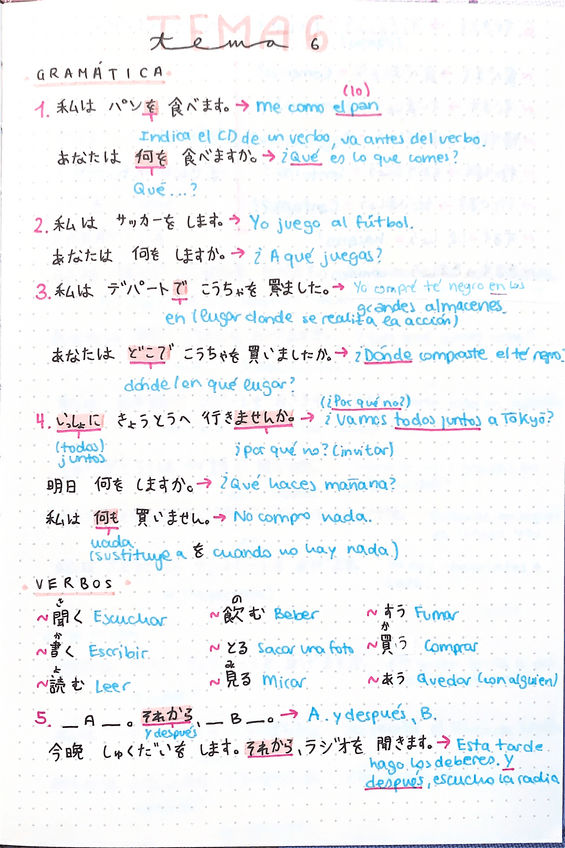 TEMA 6
tema 6
GRAMÁTICA
(lo)
1. 私は パンを 食べます。→ me como el pan
Indica el CD de un verbo, va antes del verbo.
あなたは 何を 食べますか。→ ¿Qué es lo que comes?
Qué...?
2. 私は サッカーを します。→ Yo juego al fútbol.
あなたは 何を しますか。→ ¿A qué juegas?
3. 私は デパートで こうちゃを 買ました。→ Yo compré té negro en los
grandes almacenes.
en (lugar donde se realiza la acción)
あなたは どこで こうちゃを 買いましたか。→ ¿Dónde compraste el té negro?
dónde/en qué lugar?
(¿Por qué no?)
4. いっしょに きょうとうへ 行きませんか。→ ¿Vamos todos juntos a Tōkyō?
(todos) juntos
¿por qué no? (invitar)
明日 何を しますか。→ ¿Qué haces mañana?
私は 何も 買いません。→ No compro nada.
nada
(sustituye a を cuando no hay nada)
VERBOS
き の
~聞く Escuchar ~飲む Beber ~すう Fumar
か か
~書く Escribir ~とる Sacar una foto ~買う Comprar
よ み
~読む Leer ~見る Mirar ~あう Quedar (con alguien)
5. __A__。それから、__B__。→ A. y después, B.
y después
今晩 しゅくだいを します。それから、ラジオを 聞きます。→ Esta tarde
hago los deberes. y
después, escucho la radia